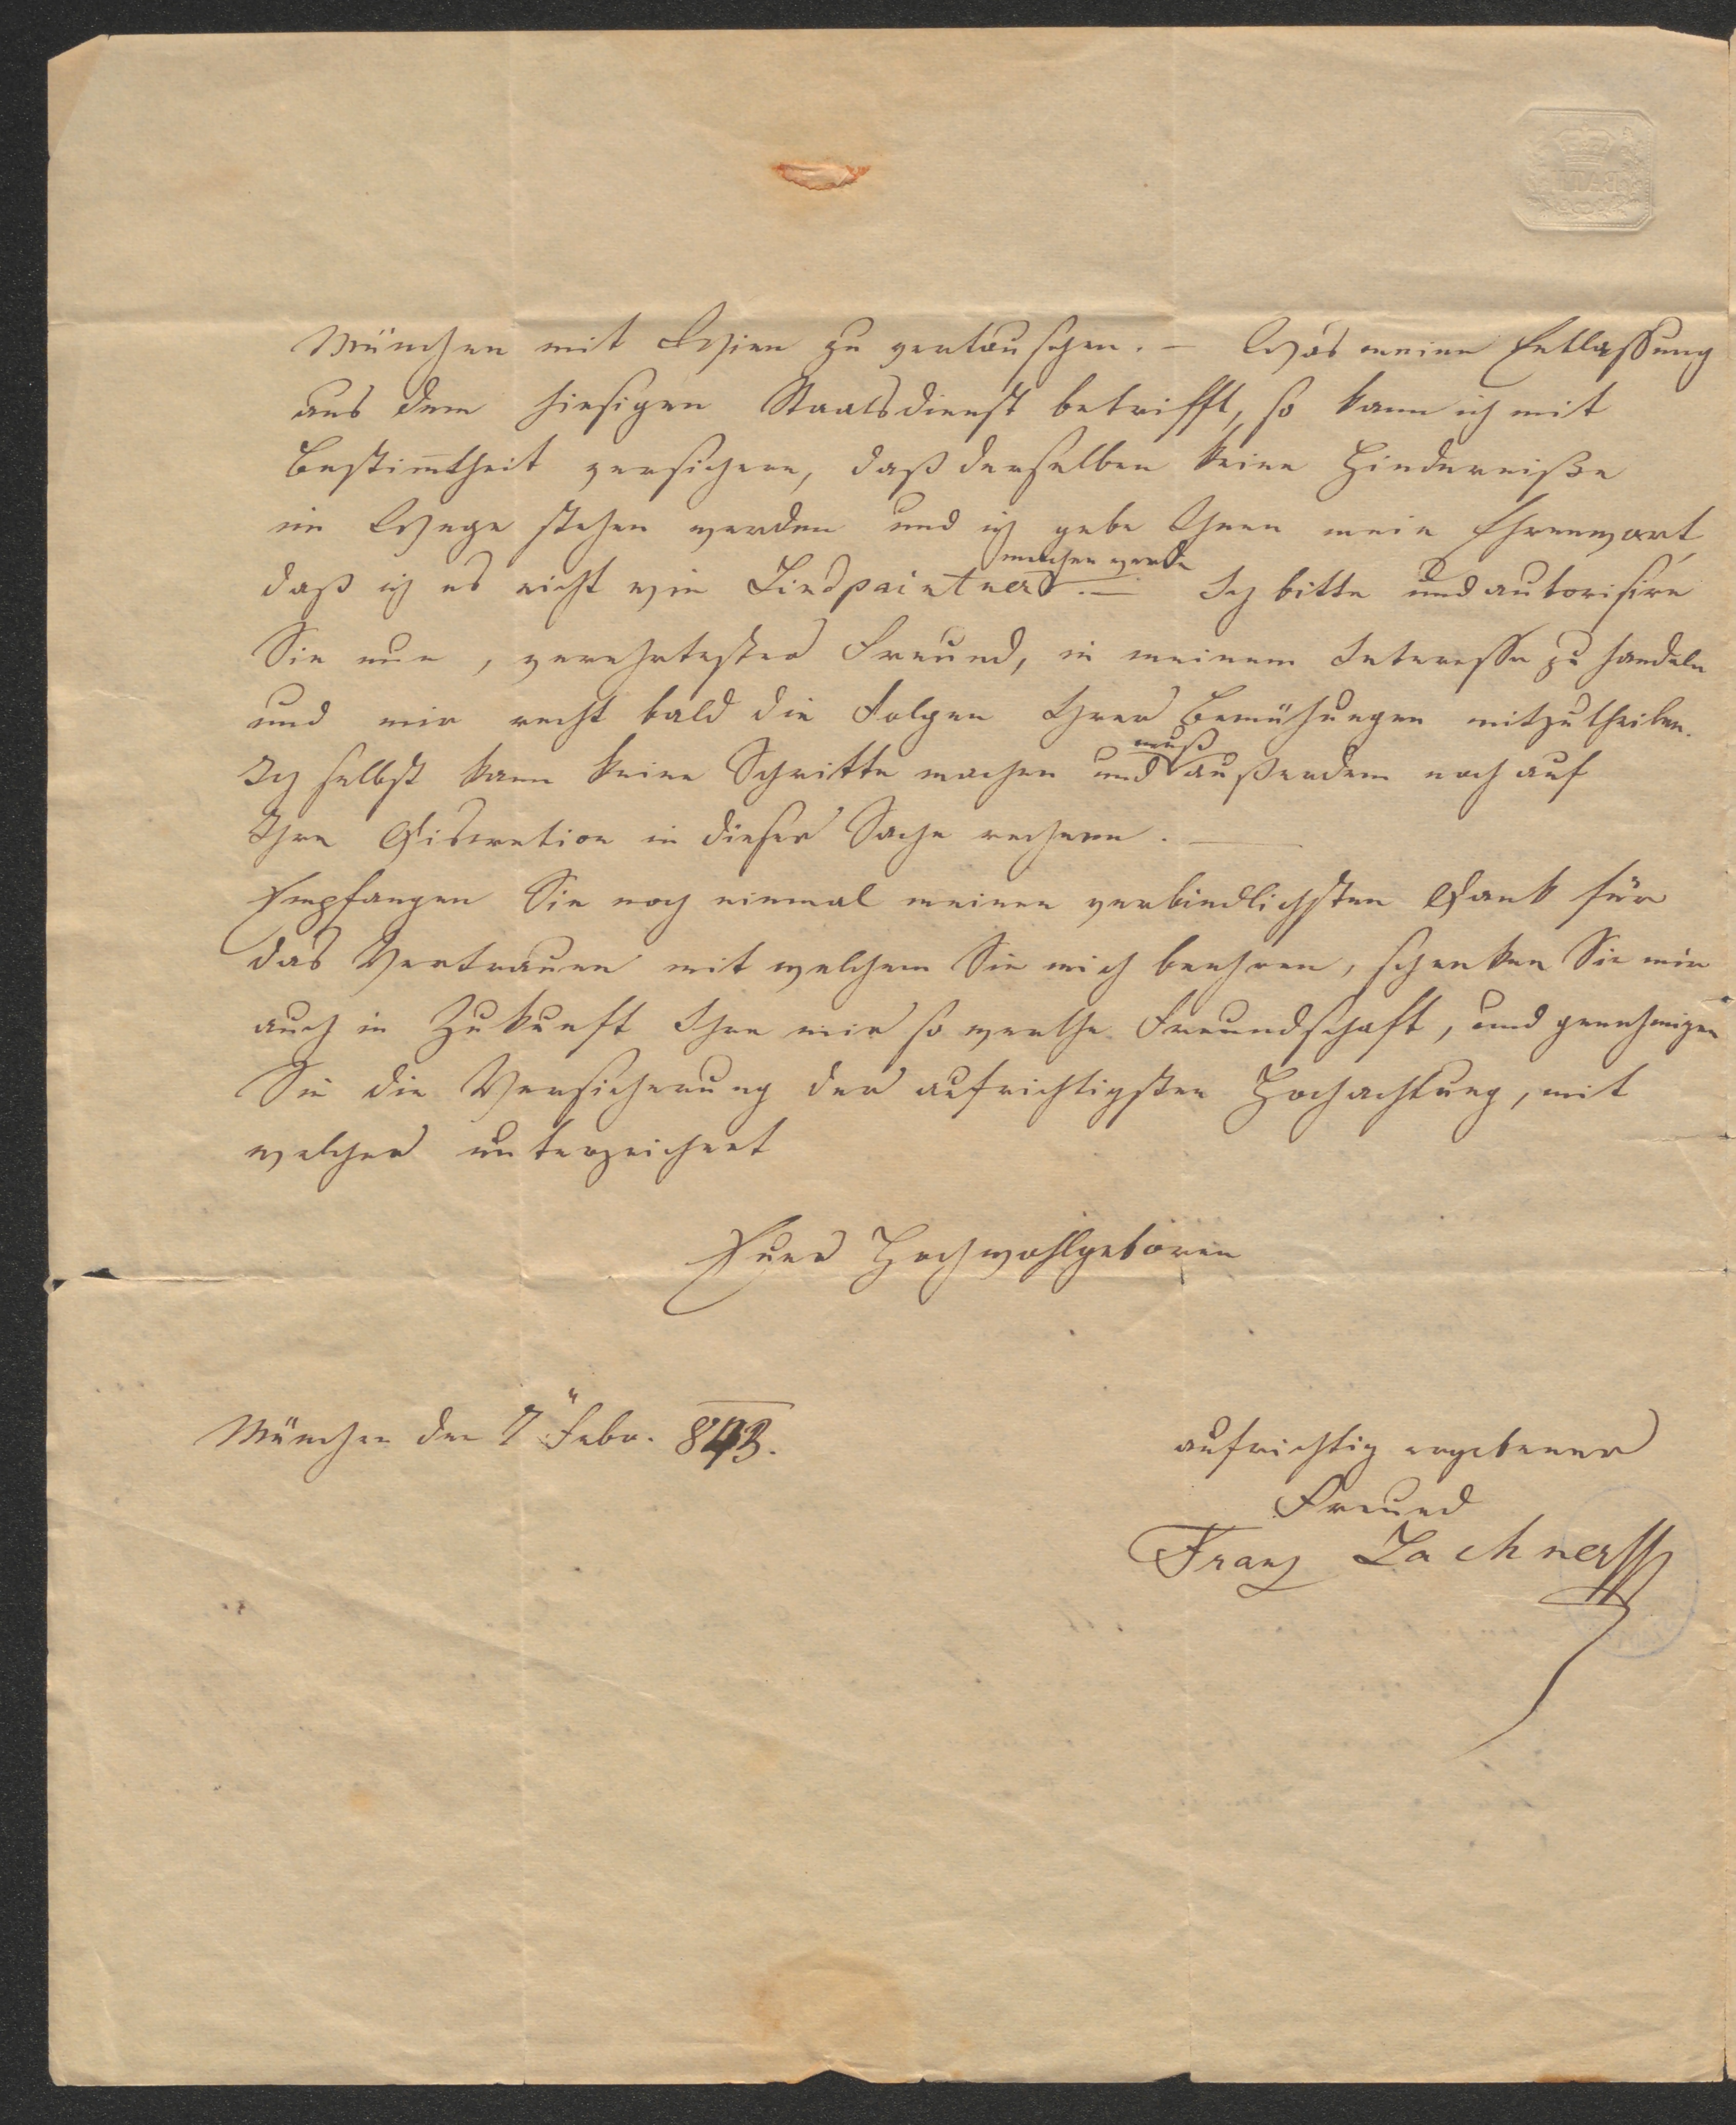 München mit Wien zu vertauschen. – Was meine Entlassung
aus dem hiesigen Staatsdienst betrifft, so kann ich mit
Bestim̄theit versichern, daß derselben keine Hinderniße
im Wege stehen werden und ich gebe Ihnen mein Ehrenwort,
machen werde
daß ich es nicht wie Lindpaintner .– Ich bitte und autorisire
Sie nun, verehrtester Freund, in meinem Interesse zu handeln
und mir recht bald die Folgen Ihrer Bemühungen mitzutheilen.
muß
Ich selbst kann keine Schritte machen und außerdem noch auf
Ihre Discretion in dieser Sache rechnen. —
Empfangen Sie noch einmal meinen verbindlichsten Dank für
das Vertrauen mit welchem Sie mich beehren, schenken Sie mir
auch in Zukunft Ihre mir so werthe Freundschaft, und genehmigen
Sie die Versicherung der aufrichtigsten Hochachtung, mit
welcher unterzeichnet
Euer Hochwohlgeboren
München den 7" Febr. 843.
aufrichtig ergebener
Freund
Franz Lachner
BATH